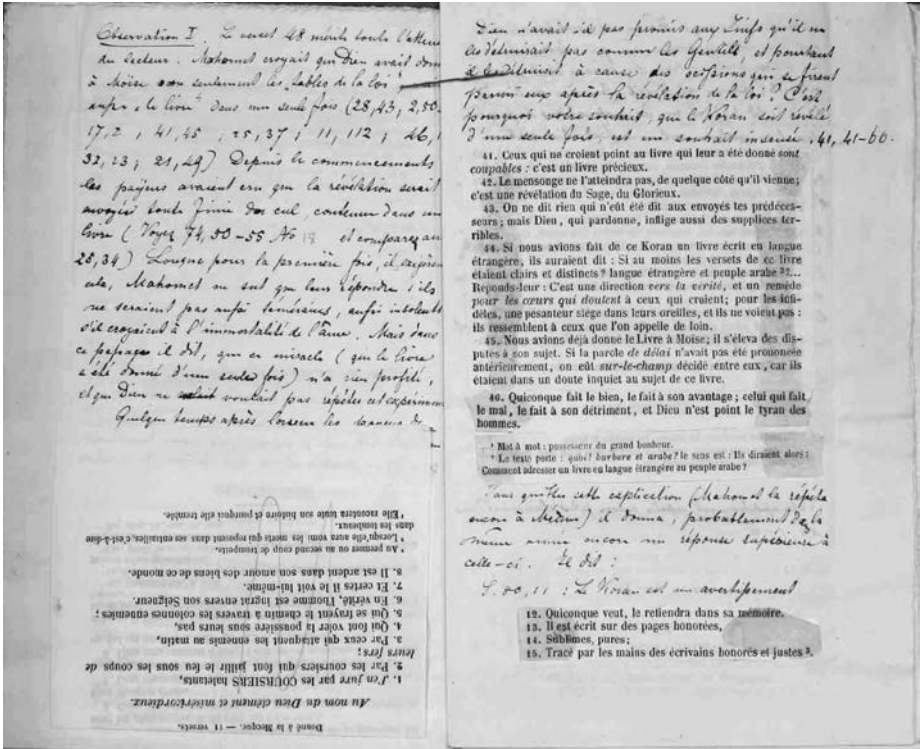 Observation I. Le verset 48 mérite toute l'attention
du lecteur. Mahomet croyait que Dieu avait donné
à Moïse non seulement les tables de la loi, mais
aussi "le livre" dans une seule fois (28,43; 2,50
17,2; 41,45; 25,37; 11,112; 46,
32,23; 21,49) Depuis le commencements
les payens avaient cru que la révélation serait
envoyée toute finie du ciel, contenue dans un
livre (Voyez 74,50-55 No 18 et comparez au
25,34) Lorsque pour la première fois, il exigèrent
cela, Mahomet ne sut que leur répondre s'ils
ne seraient pas aussi téméraires, aussi insolents
s'il croyaient à l'immortalité de l'âme. Mais dans
ce passage il dit, que ce miracle (que le livre
a été donné d'une seule fois) n'a rien profité,
et que Dieu ne voulait pas répéter cet expériment
Quelque temps après
Donné à la Mecque. — 11 versets.
Au nom du Dieu clément et miséricordieux.
1. J'en jure par les COURSIERS haletants,
2. Par les coursiers qui font jaillir le feu sous les coups de
leurs fers;
3. Par ceux qui attaquent les ennemis au matin,
4. Qui font voler la poussière sous leurs pas,
5. Qui se frayent le chemin à travers les colonnes ennemies;
6. En vérité, l'homme est ingrat envers son Seigneur.
7. Et certes il le voit lui-même.
8. Il est ardent dans son amour des biens de ce monde.
¹ Au premier ou au second coup de trompette.
² Lorsqu'elle aura vomi les morts qui reposent dans ses entrailles, c'est-à-dire
dans les tombeaux.
³ Elle racontera toute son histoire et pourquoi elle tremble.
Dieu n'avait-il pas promis aux Juifs qu'il ne
les détruirait pas comme les Gentils, et pourtant
il les détruisit à cause des scissions qui se firent
parmi eux après la révélation de la loi? C'est
pourquoi votre souhait, que le Koran soit révélé
d'une seule fois, est un souhait insensé. 41, 41-60.
41. Ceux qui ne croient point au livre qui leur a été donné sont
coupables : c'est un livre précieux.
42. Le mensonge ne l'atteindra pas, de quelque côté qu'il vienne;
c'est une révélation du Sage, du Glorieux.
43. On ne dit rien qui n'eût été dit aux envoyés tes prédéces-
seurs; mais Dieu, qui pardonne, inflige aussi des supplices ter-
ribles.
44. Si nous avions fait de ce Koran un livre écrit en langue
étrangère, ils auraient dit : Si au moins les versets de ce livre
étaient clairs et distincts? langue étrangère et peuple arabe ²?...
Réponds-leur : C'est une direction vers la vérité, et un remède
pour les cœurs qui doutent à ceux qui croient; pour les infi-
dèles, une pesanteur siège dans leurs oreilles, et ils ne voient pas :
ils ressemblent à ceux que l'on appelle de loin.
45. Nous avions déjà donné le Livre à Moïse; il s'éleva des dis-
putes à son sujet. Si la parole de délai n'avait pas été prononcée
antérieurement, on eût sur-le-champ décidé entre eux, car ils
étaient dans un doute inquiet au sujet de ce livre.
46. Quiconque fait le bien, le fait à son avantage; celui qui fait
le mal, le fait à son détriment, et Dieu n'est point le tyran des
hommes.
¹ Mot à mot : possesseur du grand bonheur.
² Le texte porte : quoi! barbare et arabe? le sens est : Ils diraient alors :
Comment adresser un livre en langue étrangère au peuple arabe?
Sans quitter cette explication (Mahomet la répéta
encore à Médine) il donna, probablement de la
même année encore un réponse supérieure à
celle-ci. Il dit :
S. 80,11 : Le Koran est un avertissement
12. Quiconque veut, le retiendra dans sa mémoire.
13. Il est écrit sur des pages honorées,
14. Sublimes, pures;
15. Tracé par les mains des écrivains honorés et justes ³.